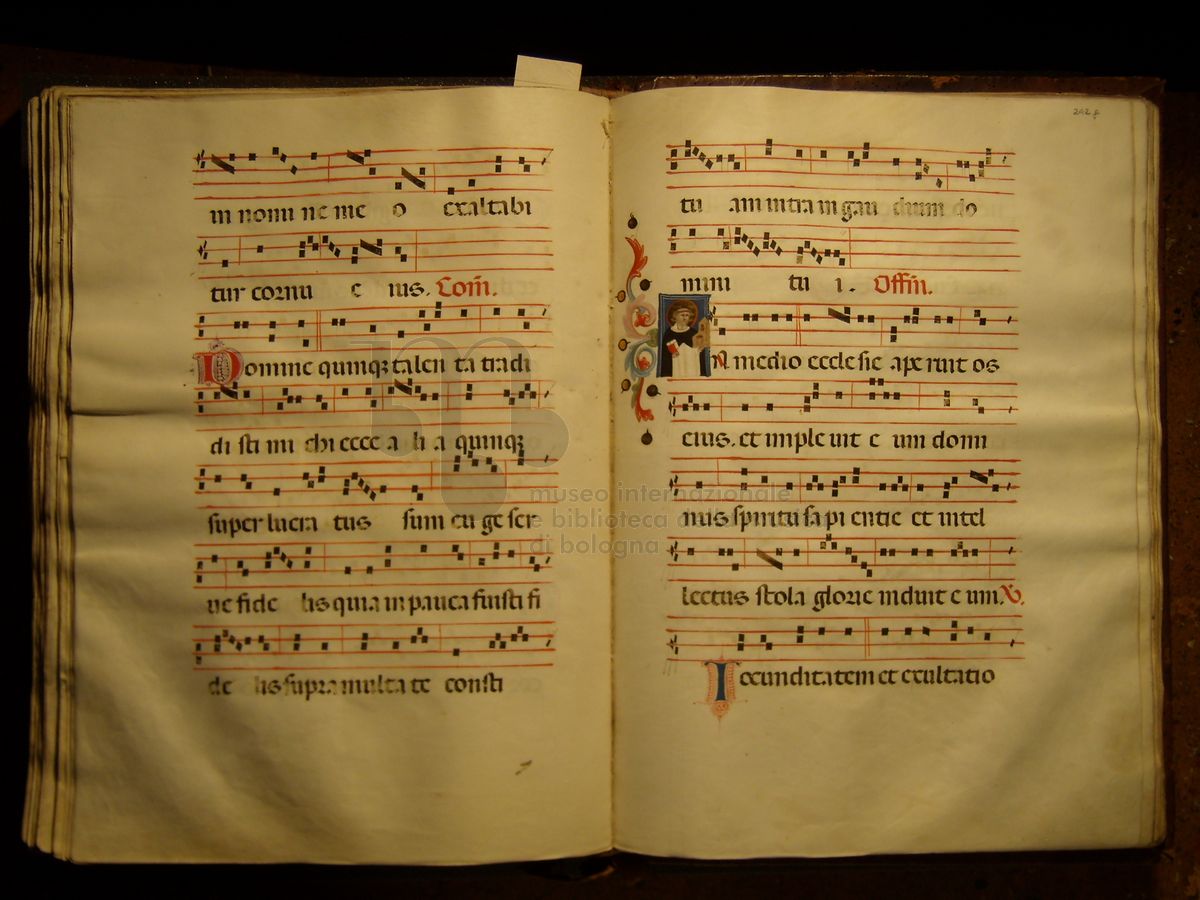 in nomi ne me o exaltabi
tur cornu e ius. Com̃.
Domine quinqꝫ talen ta tradi
di sti mi chi ecce a li a quinqꝫ
super lucra tus sum eu ge ser
ve fide lis quia in pauca fuisti fi
de lis supra multa te consti
242
tu am intra in gau dium do
mini tu i. Offiñ.
In medio eccle sie ape ruit os
eius. et imple uit e um domi
nus spiritu sa pi entie et intel
lectus stola glorie induit e um. V.
Iocunditatem et exultatio
museo internazionale
e biblioteca della musica
di bologna